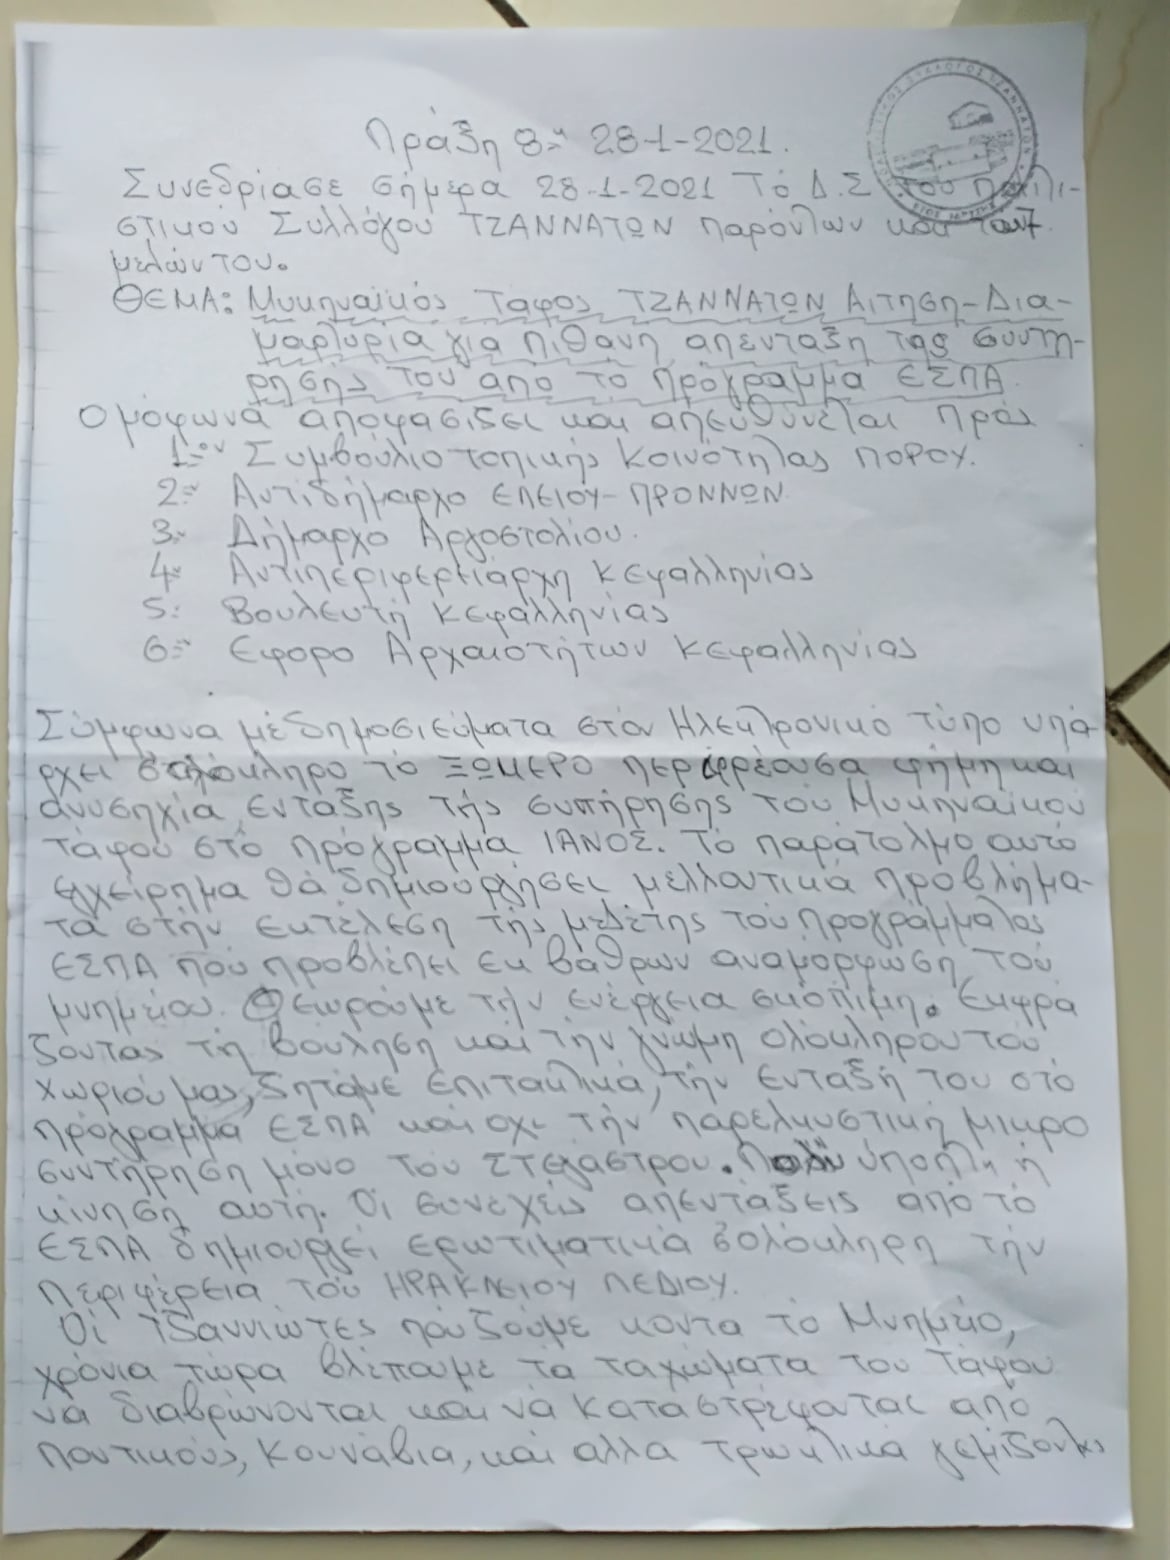 Πράξη 8η 28-1-2021.
Συνεδρίασε σήμερα 28-1-2021 Τό Δ.Σ του Πολιτι-
στικού Συλλόγου ΤΖΑΝΝΑΤΩΝ παρόντων και των 7
μελών του.
ΘΕΜΑ: Μυκηναϊκός Τάφος ΤΖΑΝΝΑΤΩΝ Αιτηση-Δια-
μαρτυρία για πιθανή απενταξη της συντη-
ρησής του από το πρόγραμμα ΕΣΠΑ.
Ομόφωνα αποφασίζει και απευθύνεται πρός
1ον Συμβούλιο τοπικής Κοινότητας ΠΟΡΟΥ.
2ον Αντιδήμαρχο ΕΛΕΙΟΥ-ΠΡΟΝΝΩΝ
3ον Δήμαρχο Αργοστολίου.
4ον Αντιπεριφερειάρχη Κεφαλληνίας
5: Βουλευτή Κεφαλληνίας
6ον Εφορο Αρχαιοτήτων Κεφαλληνίας
Σύμφωνα μέ δημοσιεύματα στόν Ηλεκτρονικό τύπο υπά-
ρχει σ' ολόκληρο το ΞΩΜΕΡΟ περιρρέουσα φήμη και
ανυσηχία ενταξης τής συντήρησης του Μυκηναϊκού
τάφου στό πρόγραμμα ΙΑΝΟΣ. Τό παράτολμο αυτό
εγχείρημα θά δημιουργήσει μελλοντικά προβλήμα-
τα στήν εκτέλεση τής μελέτης τού προγράμματος
ΕΣΠΑ πού προβλέπει εκ βάθρων αναμόρφωση τού
μνημείου. Θεωρούμε τήν ενέργεια σκόπιμη. Εκφρά
ζοντας τη βούληση και τήν γνώμη ολόκληρου τού
χωριού μας, ζητάμε επιτακτικά, τήν ενταξή του στό
πρόγραμμα ΕΣΠΑ και οχι τήν παρελκυστική μικρο
συντήρηση μόνο του στεγαστρου. Πολύ ύποπτη ή
κίνηση αυτή. Οι συνεχείς απεντάξεις από το
ΕΣΠΑ δημιουργεί ερωτιματικά σ' ολόκληρη τήν
περιφέρεια τού ΗΡΑΚΛΕΙΟΥ ΠΕΔΙΟΥ.
Οί Τζαννιώτες πού ζούμε κοντα το Μνημείο,
χρόνια τώρα βλέπουμε τα ταχώματα του Τάφου
να διαβρώνονται και νά καταστρέφονται από
ποντικούς, κουνάβια, και αλλα τρωκτικά γεμίζοντας